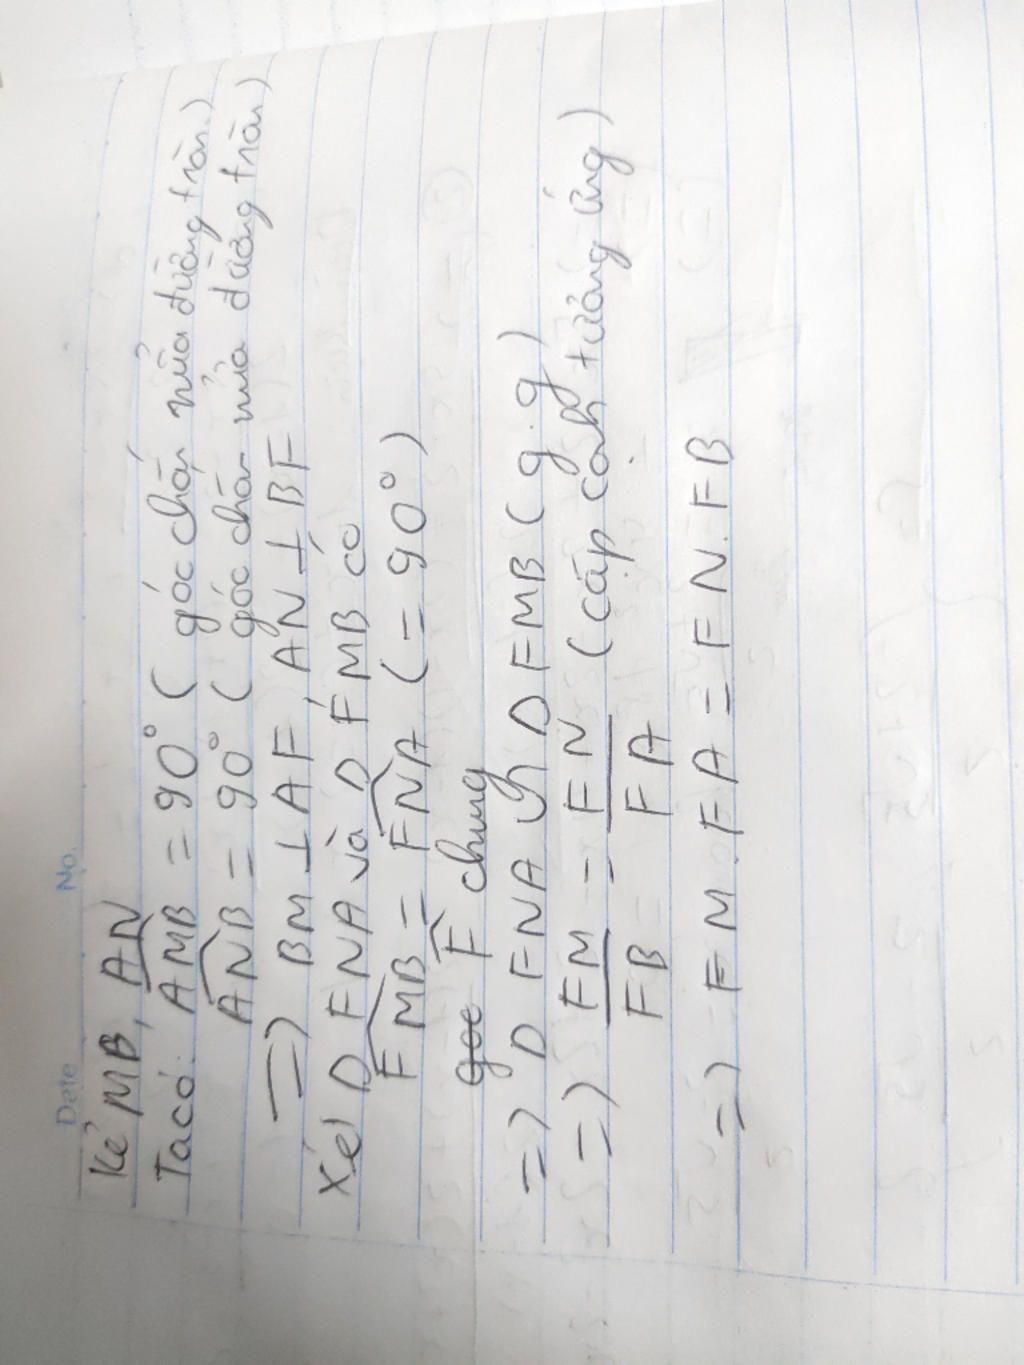 Date No.
Kẻ MB, AN
Ta có: AMB = 90° (góc chắn nửa đường tròn)
ANB = 90° (góc chắn nửa đường tròn)
=) BM ⊥ AF, AN ⊥ BF
Xét D FNA và D FMB có
FMB = FNA (= 90°)
góc F chung
=) D FNA ∽ D FMB (g.g)
=) FM/FB = FN/FA (cặp cạnh tương ứng)
=) FM.FA = FN.FB